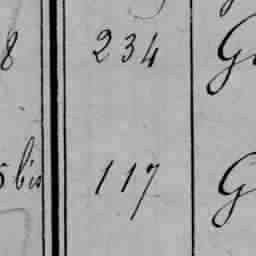 8 234 G
5 bis 117 G